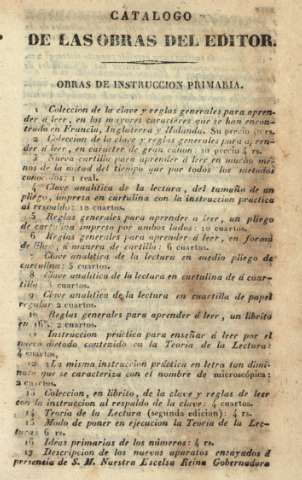 CATALOGO
DE LAS OBRAS DEL EDITOR.
OBRAS DE INSTRUCCION PRIMARIA.
1 Coleccion de la clave y reglas generales para apren-
der á leer, en los mayores caracteres que se han encon-
trado en Francia, Inglaterra y Holanda. Su precio rs.
2 Coleccion de la clave y reglas generales para a,ren-
der á leer, en carácter de gran canon: su precio 4 rs.
3 Nueva cartilla para aprender á leer en mucho me-
nos de la mitad del tiempo que por todos los metodos
conocidos: 1 real.
4 Clave analitica de la lectura, del tamaño de un
pliego, impresa en cartulina con la instruccion práctica
al respaldo: 10 cuartos.
5 Reglas generales para aprender á leer, un pliego
de cartulina impreso por ambos lados: 10 cuartos.
6 Reglas generales para aprender á leer, en forma
de libro, á manera de cartilla: 6 cuartos.
7 Clave analitica de la lectura en medio pliego de
cartulina: 5 cuartos.
8 Clave analitica de la lectura en cartulina de á cuar-
tilla: 3 cuartos.
9 Clave analitica de la lectura en cuartilla de papel
regular: 2 cuartos.
10 Reglas generales para aprender á leer, un librito
en 16º: 2 cuartos.
11 Instruccion práctica para enseñar á leer por el
nuevo metodo contenido en la Teoria de la Lectura:
4 cuartos.
12 La misma instruccion práctica en letra tan dimi-
nuta que se caracteriza con el nombre de microscópica:
2 cuartos.
13 Coleccion, en librito, de la clave y reglas de leer
con la instruccion al respaldo de la clave: 4 cuartos.
14 Teoria de la Lectura (segunda edicion): 4 rs.
15 Modo de poner en ejecucion la Teoria de la Lec-
tura: 6 rs.
16 Ideas primarias de los números: 4 rs.
17 Descripcion de los nuevos aparatos ensayados á
presencia de S. M. Nuestra Escelsa Reina Gobernadora